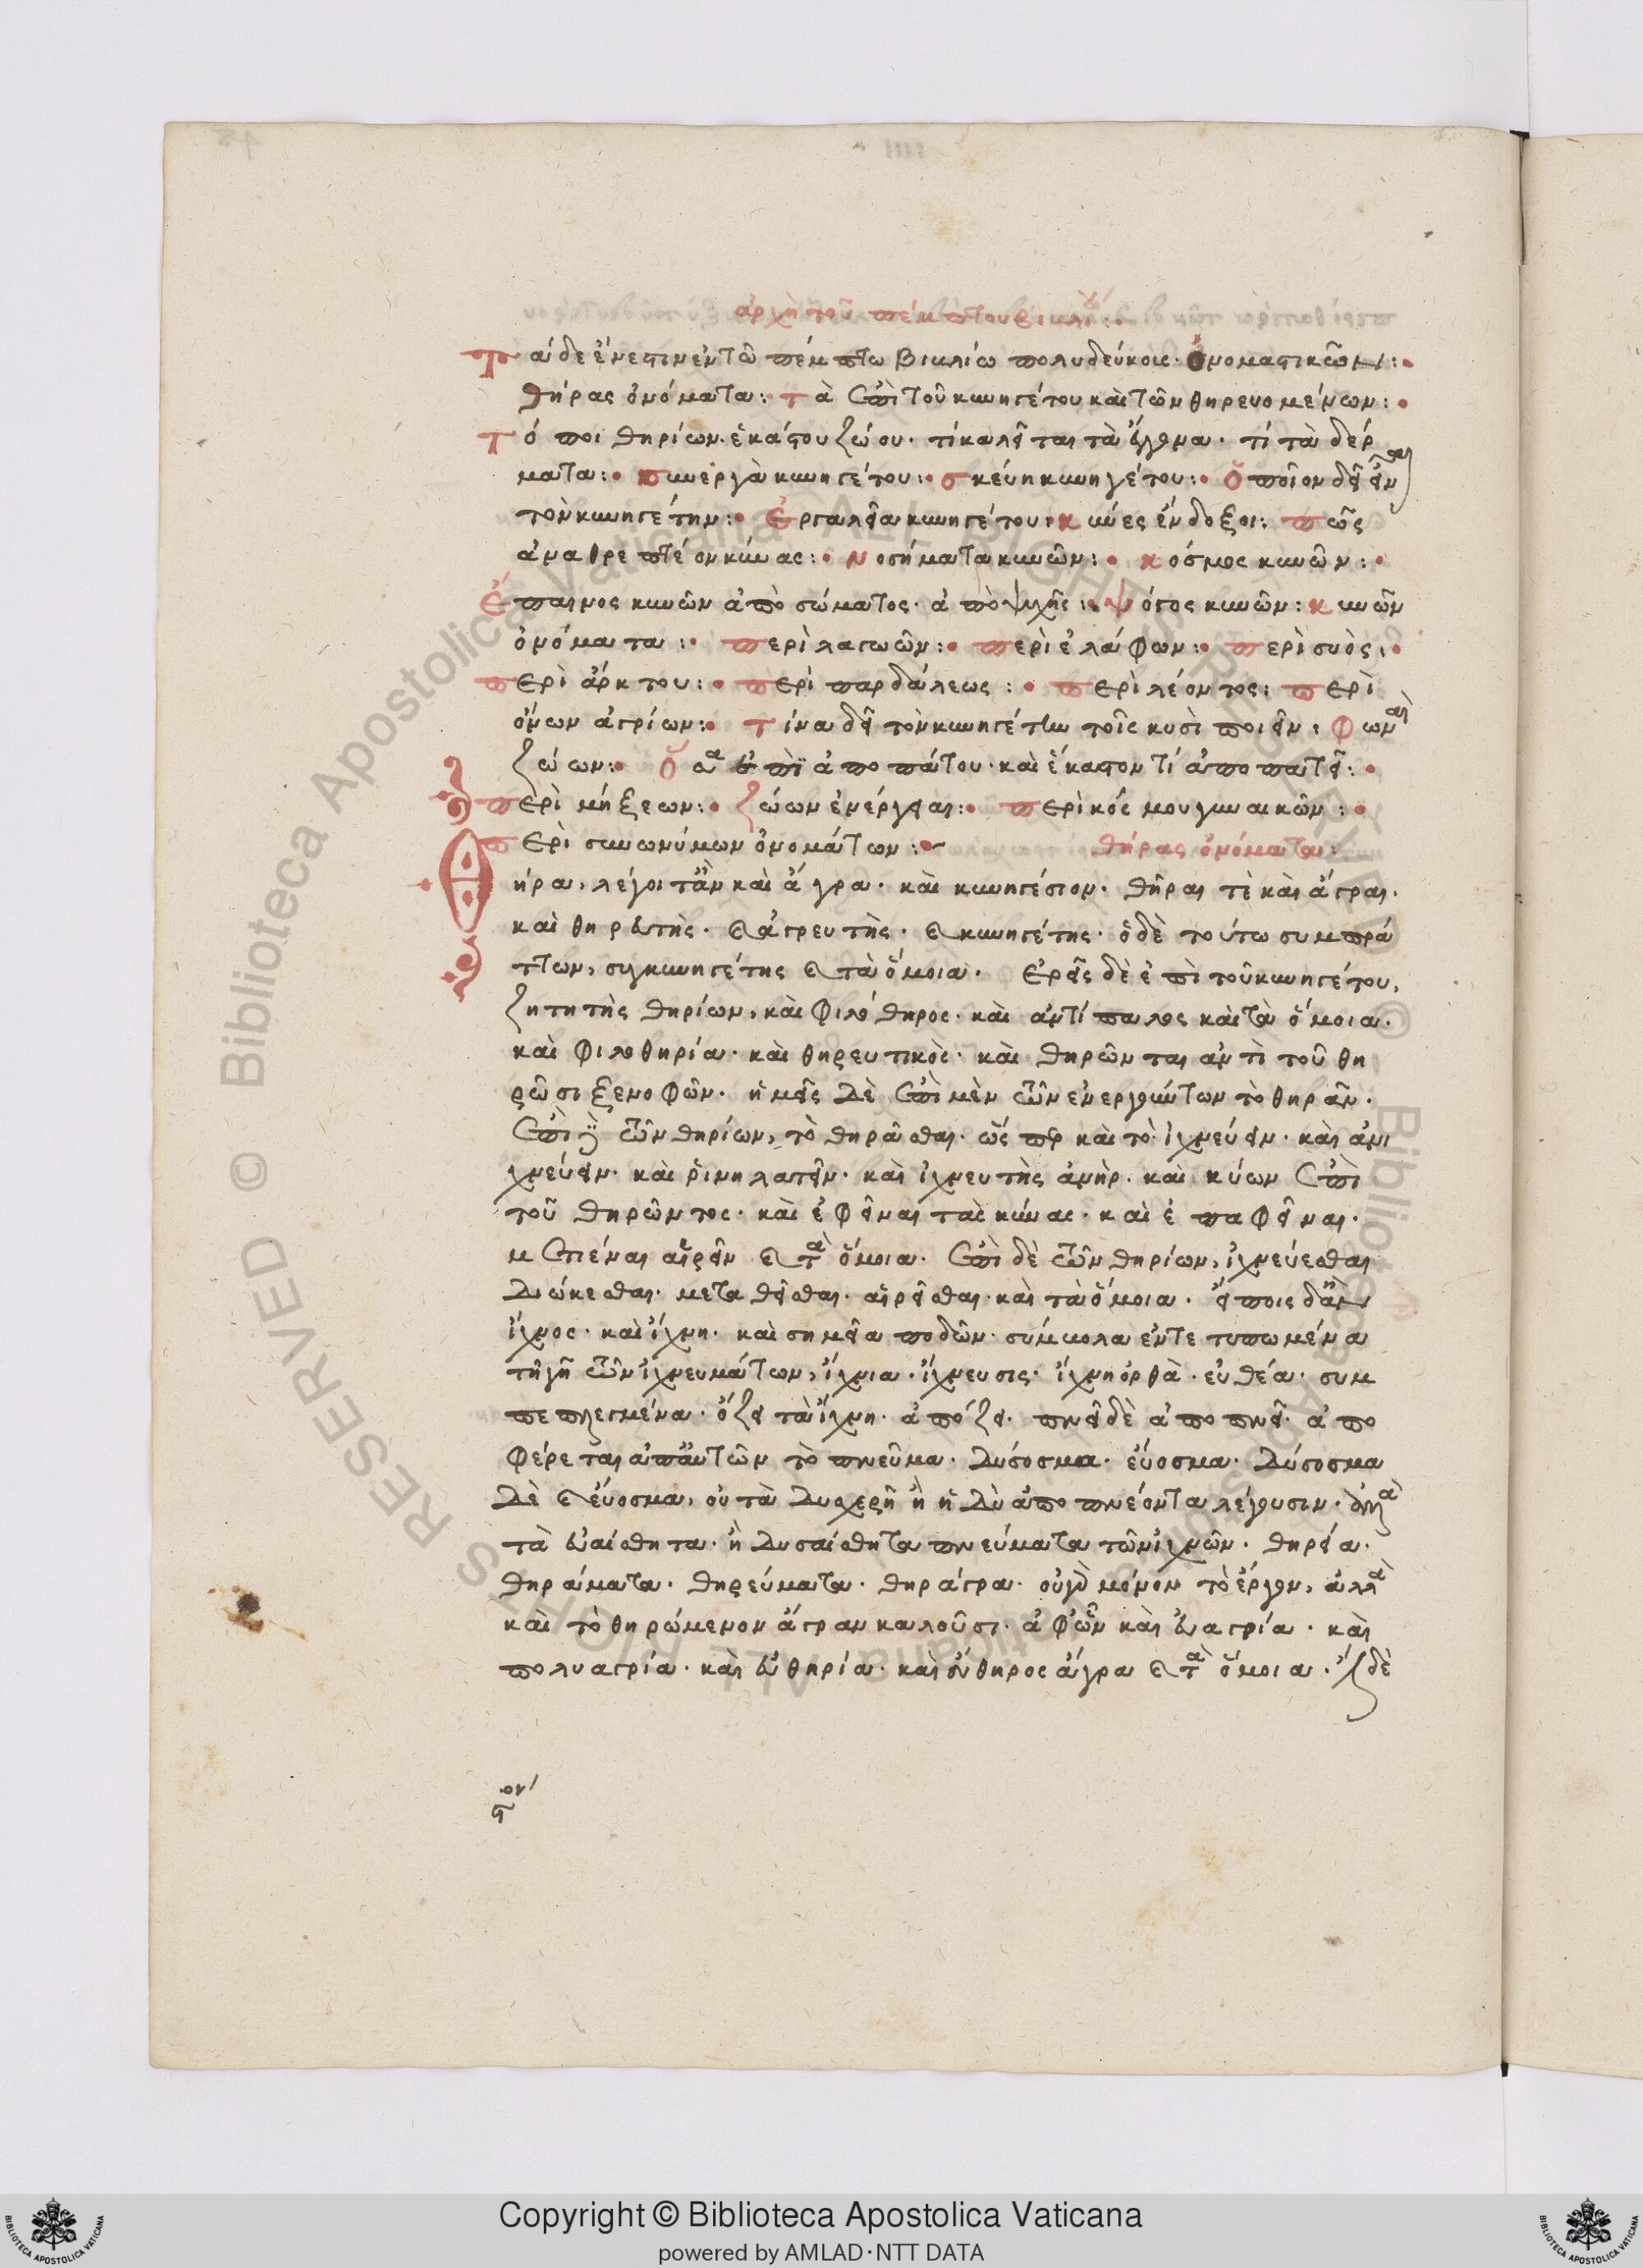 ἀρχὴ τοῦ πέμπτου βιβλίου :·
Τάδε ἔνεστιν ἐν τῶ πέμπτω βιβλίω πολυδεύκους ὀνομαστικῶν :·
θήρας ὀνόματα : τὰ ἐπὶ τοῦ κυνηγέτου καὶ τῶν θηρευομένων :·
Τόποι θηρίων. ἑκάστου ζώου. τί καλεῖται τὰ ἔγγονα. τί τὰ δέρ
ματα :· συνεργὰ κυνηγέτου :· σκεύη κυνηγέτου :· ὁποῖον δεῖ εἶναι
τὸν κυνηγέτην :· ἐργαλεῖα κυνηγέτου· κύνες ἔνδοξοι : πῶς
ἀναθρεπτέον κύνας :· νοσήματα κυνῶν :· κόσμος κυνῶν :·
ἔπαινος κυνῶν ἀπὸ σώματος· ἀπὸ ψυχῆς :· ψόγος κυνῶν : κυνῶν
ὀνόματα :· περὶ λαγωῶν :· περὶ ἐλάφων :· περὶ συὸς :·
περὶ ἄρκτου :· περὶ παρδάλεως :· περὶ λέοντος : περὶ
ὄνων ἀγρίων :· τίνα δεῖ τὸν κυνηγέτην τοῖς κυσὶ ποιεῖν : φωναὶ
ζώων :· ἀποπάτου· καὶ ἕκαστον τί ἀποπατεῖ :·
περὶ μήξεων :· ζώων ἐνέργειαι :· περὶ κόσμου γυναικῶν :·
περὶ συνωνύμων ὀνομάτων :· θήρας ὀνόματα :
Θήρα, λέγοιτ ἂν καὶ ἄγρα· καὶ κυνηγέσιον· θῆραι τὲ καὶ ἄγραι.
καὶ θηρευτὴς· καὶ ἀγρευτὴς· καὶ κυνηγέτης· ὁ δὲ τούτω συμπρά
ττων, συγκυνηγέτης καὶ τὰ ὅμοια. Ἐρεῖς δὲ ἐπὶ τοῦ κυνηγέτου,
ζητητὴς θηρίων, καὶ φιλόθηρος· καὶ ἀντίπαλος καὶ τὰ ὅμοια.
καὶ φιλοθηρία· καὶ θηρευτικὸς· καὶ θηρῶνται ἀντὶ τοῦ θη
ρῶσι ξενοφῶν· ἡμεῖς δὲ ἐπὶ μὲν τῶν ἐνεργούντων τὸ θηρᾶν.
ἐπὶ δὲ τῶν θηρίων, τὸ θηρᾶσθαι· ὥσπερ καὶ τὸ ἰχνεύειν· καὶ ἀνι
χνεύειν· καὶ ῥινηλατεῖν· καὶ ἰχνευτὴς ἀνὴρ· καὶ κύων ἐπὶ
τοῦ θηρῶντος· καὶ ἐφεῖναι τὰς κύνας· καὶ ἐπαφεῖναι.
μετιέναι αἱρεῖν καὶ τὰ ὅμοια. ἐπὶ δὲ τῶν θηρίων, ἰχνεύεσθαι
διώκεσθαι· μεταθεῖσθαι· αἱρεῖσθαι· καὶ τὰ ὅμοια. εἴποις δ ἂν
ἴχνος· καὶ ἴχνη· καὶ σημεῖα ποδῶν· σύμβολα ἐντετυπωμένα
τῆ γῆ τῶν ἰχνευμάτων, ἴχνια· ἴχνευσις· ἴχνη ὀρθὰ· εὐθέα· συμ
πεπλεγμένα· ὄζει τὰ ἴχνη· ἀπόζει· πνεῖ δὲ ἀποπνεῖ· ἀπο
φέρεται ἀπ αὐτῶν τὸ πνεῦμα· δύσοσμα· εὔοσμα· δύσοσμα
δὲ καὶ εὔοσμα, οὐ τὰ δυσχερῆ ἢ ἡδὺ ἀποπνέοντα λέγουσιν· ἀλλὰ
τὰ εὐαίσθητα· ἢ δυσαίσθητα πνεύματα τῶν ἰχνῶν· θηρεία.
θηράματα· θηρεύματα· θηράγρα· οὐ γὰρ μόνον τὸ ἔργον, ἀλλὰ
καὶ τὸ θηρώμενον ἄγραν καλοῦσι· ἀφ ὧν καὶ εὐαγρία· καὶ
πολυαγρία· καὶ εὐθηρία· καὶ εὔθηρος ἄγρα καὶ τὰ ὅμοια. δὲ